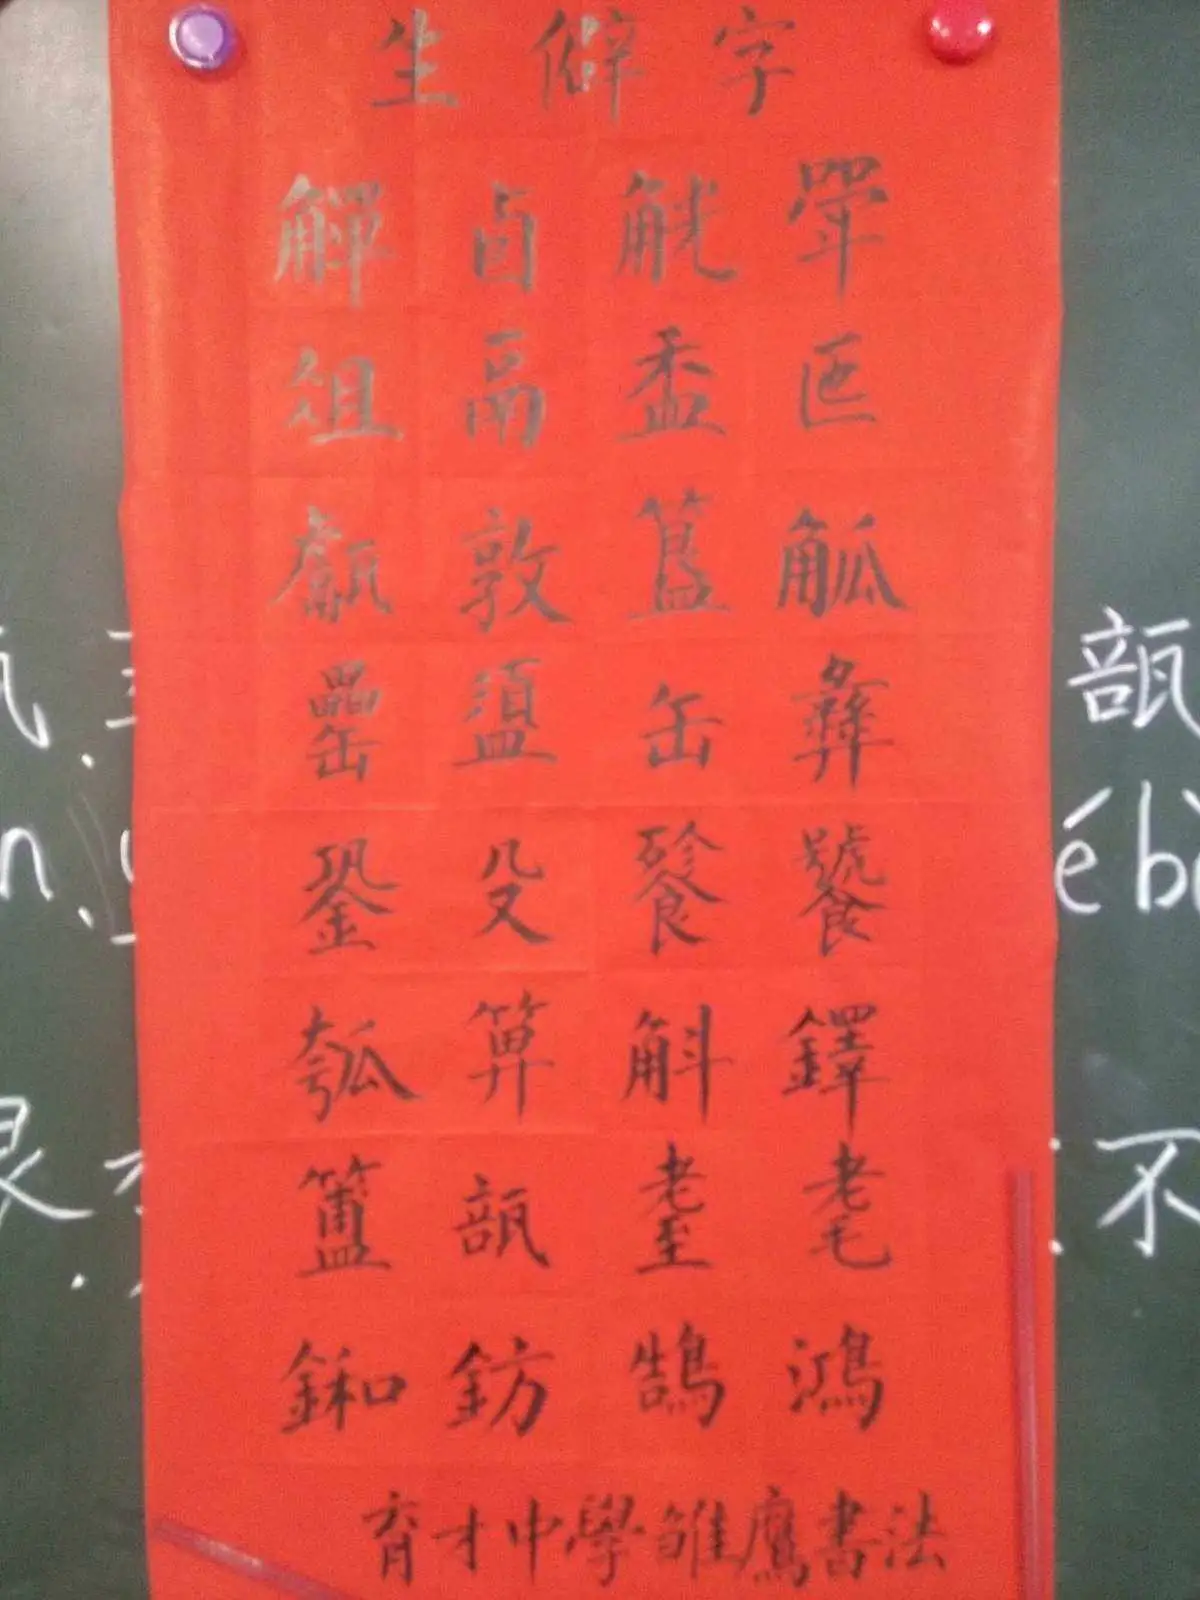 生僻字
斝觥卣觶
匜盉鬲俎
觚簋敦甗
彝缶盨罍
饕餮殳銎
鐸斛箅瓠
耄耋瓿簠
鴻鵠鈁鉌
育才中學雏鷹書法
瓿
不